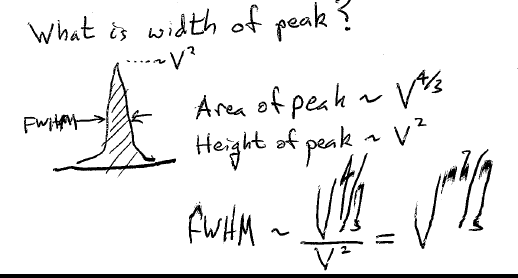 What is width of peak?
~ V²
FWHM
Area of peak ~ V^4/3
Height of peak ~ V²
FWHM ~ V^4/3 / V² = V^-2/3